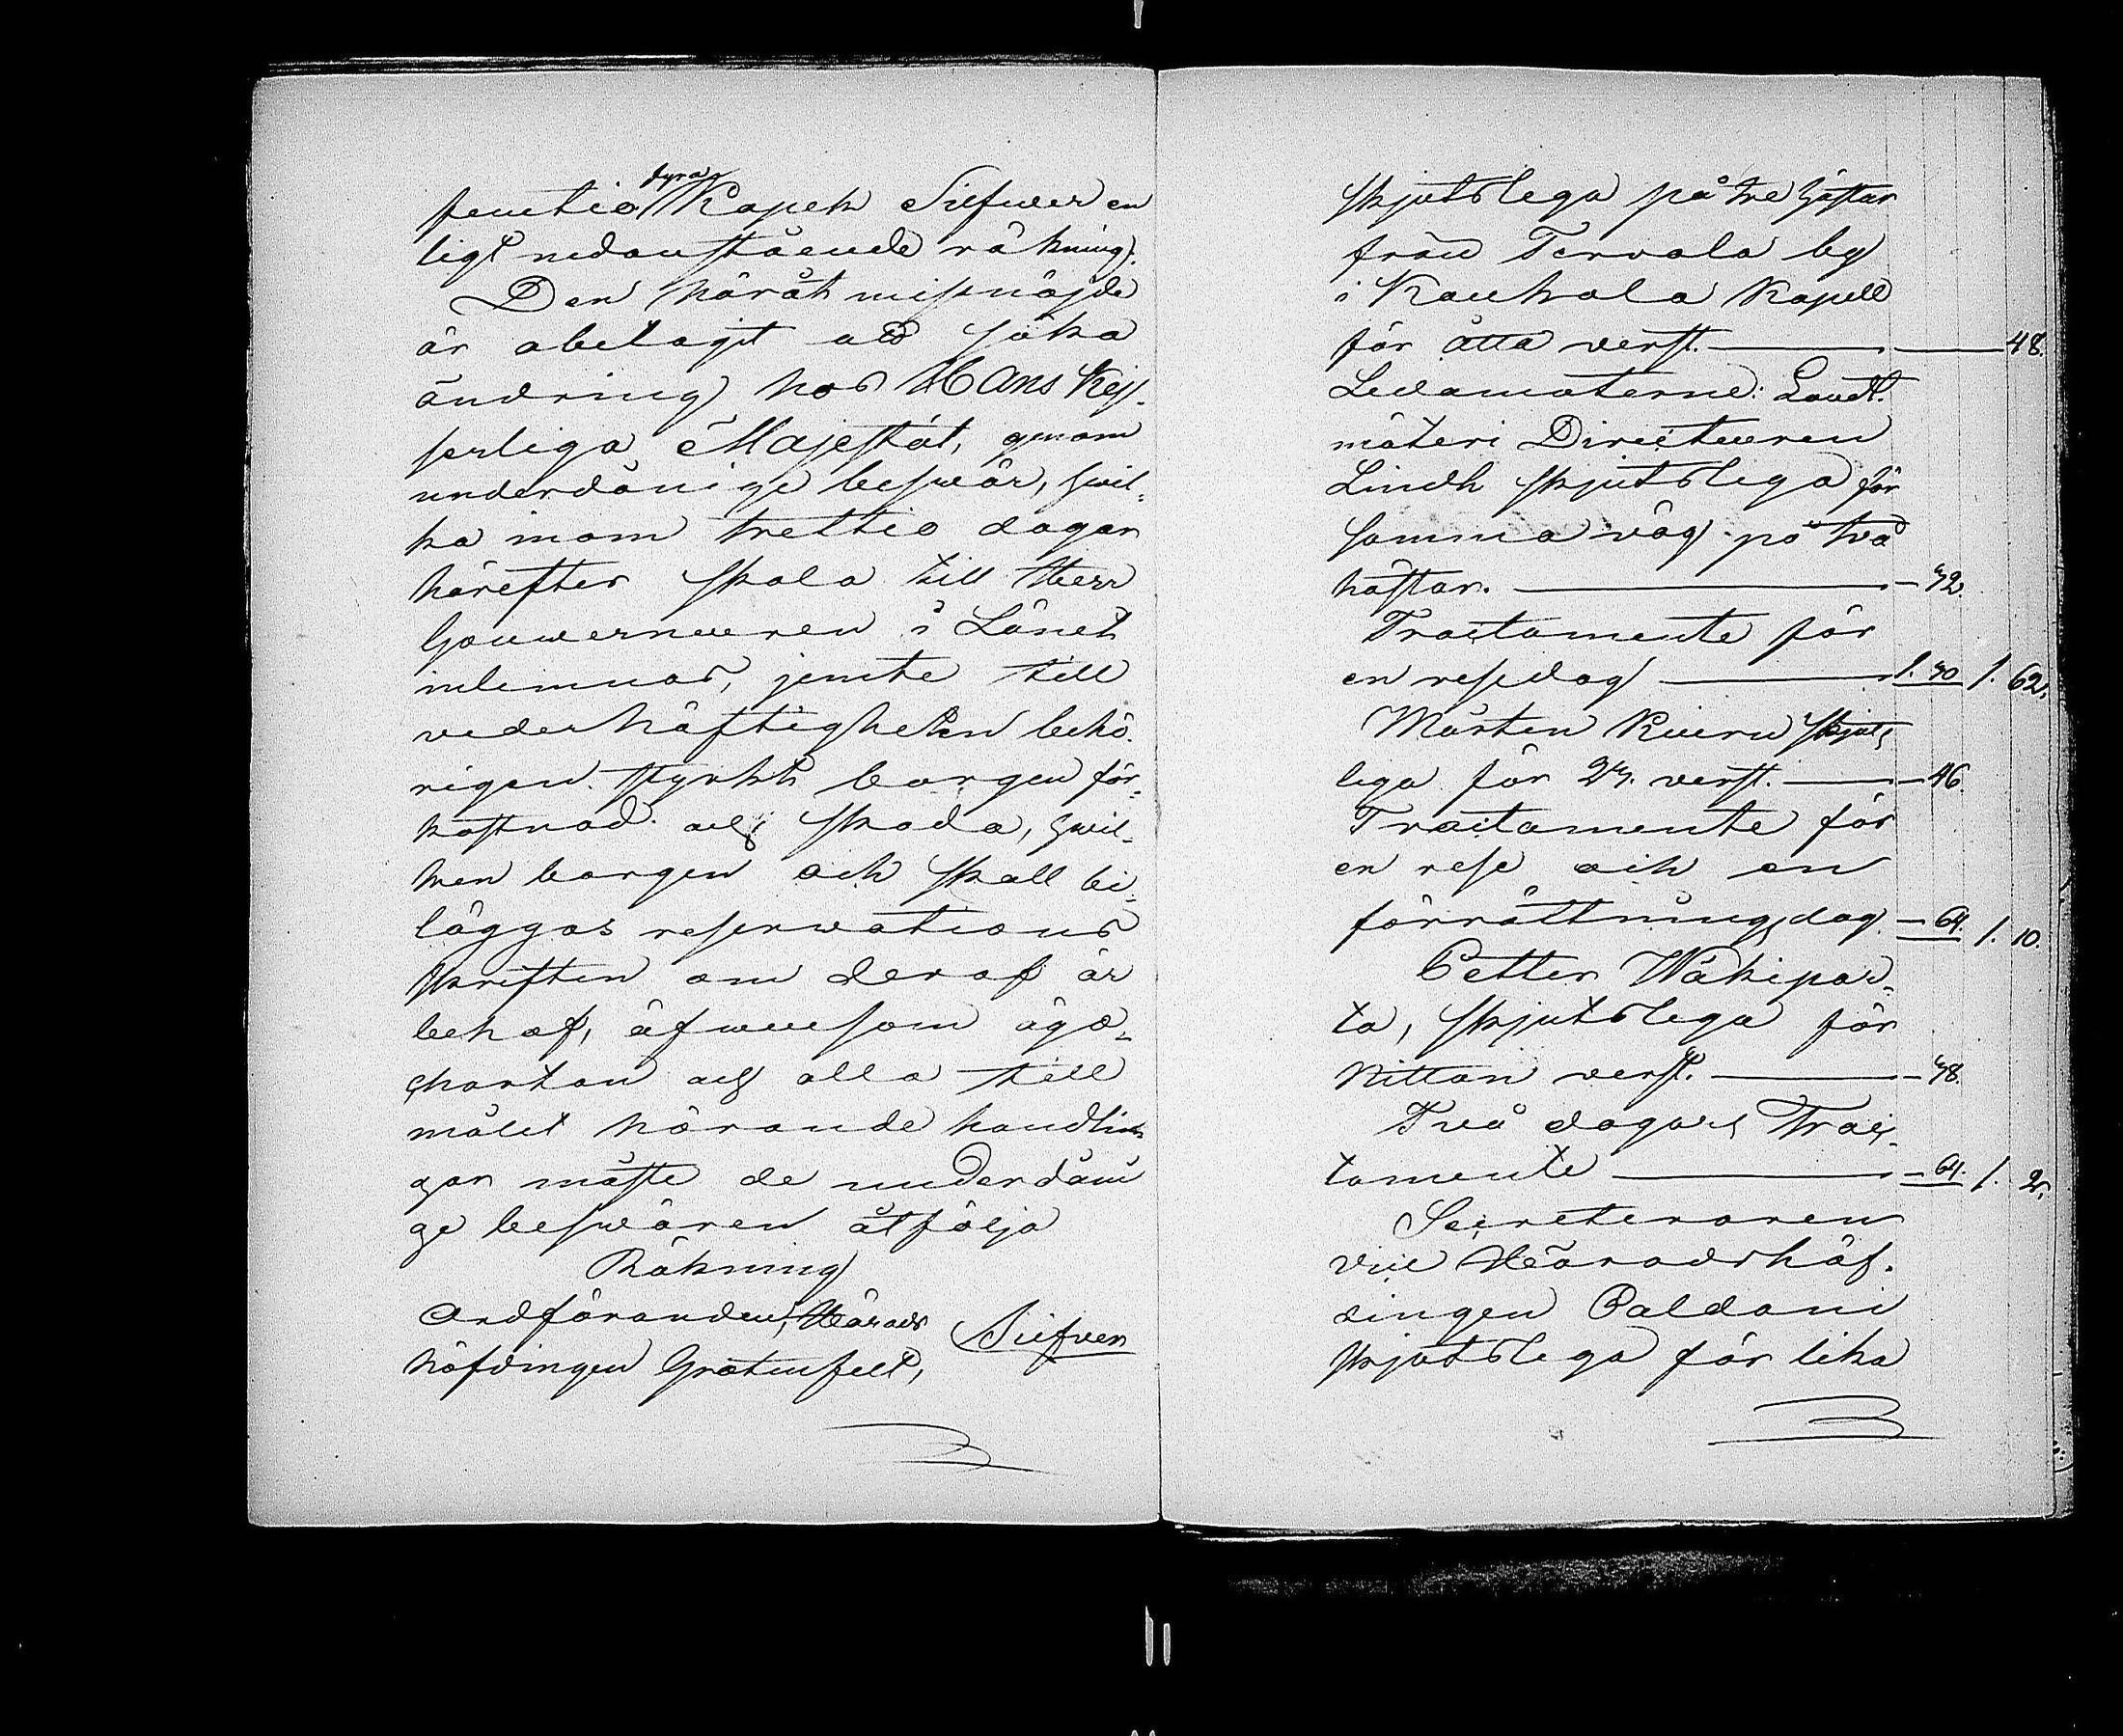 femtio fyra Kopek Silfwer en
ligt nedanstående räkning.
Den häråt missnöjde
är obetagit att söka
ändring hos Hans Kej-
serliga Majestät, genom
underdånige beswär, hwil-
ka inom trettio dagar
härefter skola till Herr
Gouverneuren i Länet
inlemnas, jemte till
vederhäftigheten behö-
rigen styrkt borgen för
kostnad och skada, hwil-
ken borgen och skall bi-
läggas reservations
skriften om deraf är
behof, äfwensom ägo-
chartan och alla till
målet hörande handlin
gar måste de underdåni
ge beswären åtfölja
Räkning
Ordföranden, Härads
höfdingen Grotenfelt, Silfver
skjutslega på tre hästar
från Tervola by
i Kaukola Kapell
för åtta verst. — 48.
Ledamoterne: Landt-
mäteri Directeuren
Lindh skjutslega för
samma väg på två
hästar. — 32.
Tractamente för
en resedag — 1. 30 1. 62.
Mårten Kiuru skjuts
lega för 23. verst. — 46.
Tractamente för
en rese och en
förrättningsdag. — 64. 1. 10.
Petter Wäkipar-
ta, skjutslega för
Nitton verst. — 38.
Två dagars Trac-
tamente — 64. 1. 2.
Secreteraren
vice Häradshöf-
dingen Paldani
skjutslega för lika